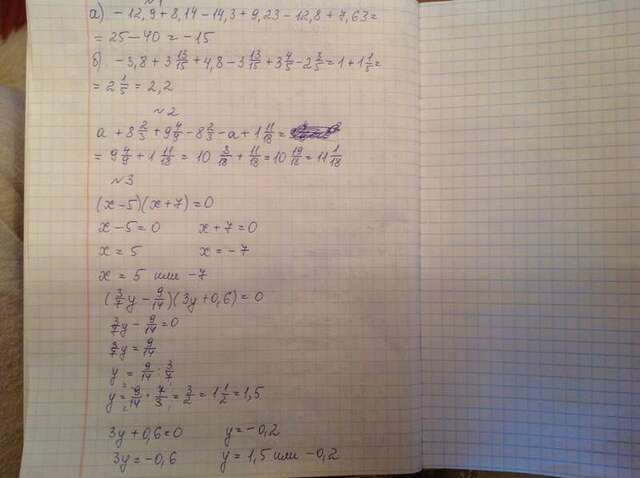 ~1
а) -12,9 + 8,14 - 14,3 + 9,23 - 12,8 + 7,63 =
= 25 - 40 = -15
б) -3,8 + 3 13/15 + 4,8 - 3 13/15 + 3 4/5 - 2 3/5 = 1 + 1 1/5 =
= 2 1/5 = 2,2
~2
а + 8 2/3 + 9 4/9 - 8 2/3 - а + 1 11/18 =
= 9 4/9 + 1 11/18 = 10 8/18 + 11/18 = 10 19/18 = 11 1/18
~3
(x-5)(x+7)=0
x-5=0 x+7=0
x=5 x=-7
x=5 или -7
(3/7 y - 9/14)(3y+0,6)=0
3/7 y - 9/14 = 0
3/7 y = 9/14
y = 9/14 : 3/7
y = 9/14 · 7/3 = 3/2 = 1 1/2 = 1,5
3y+0,6=0 y=-0,2
3y=-0,6 y=1,5 или -0,2